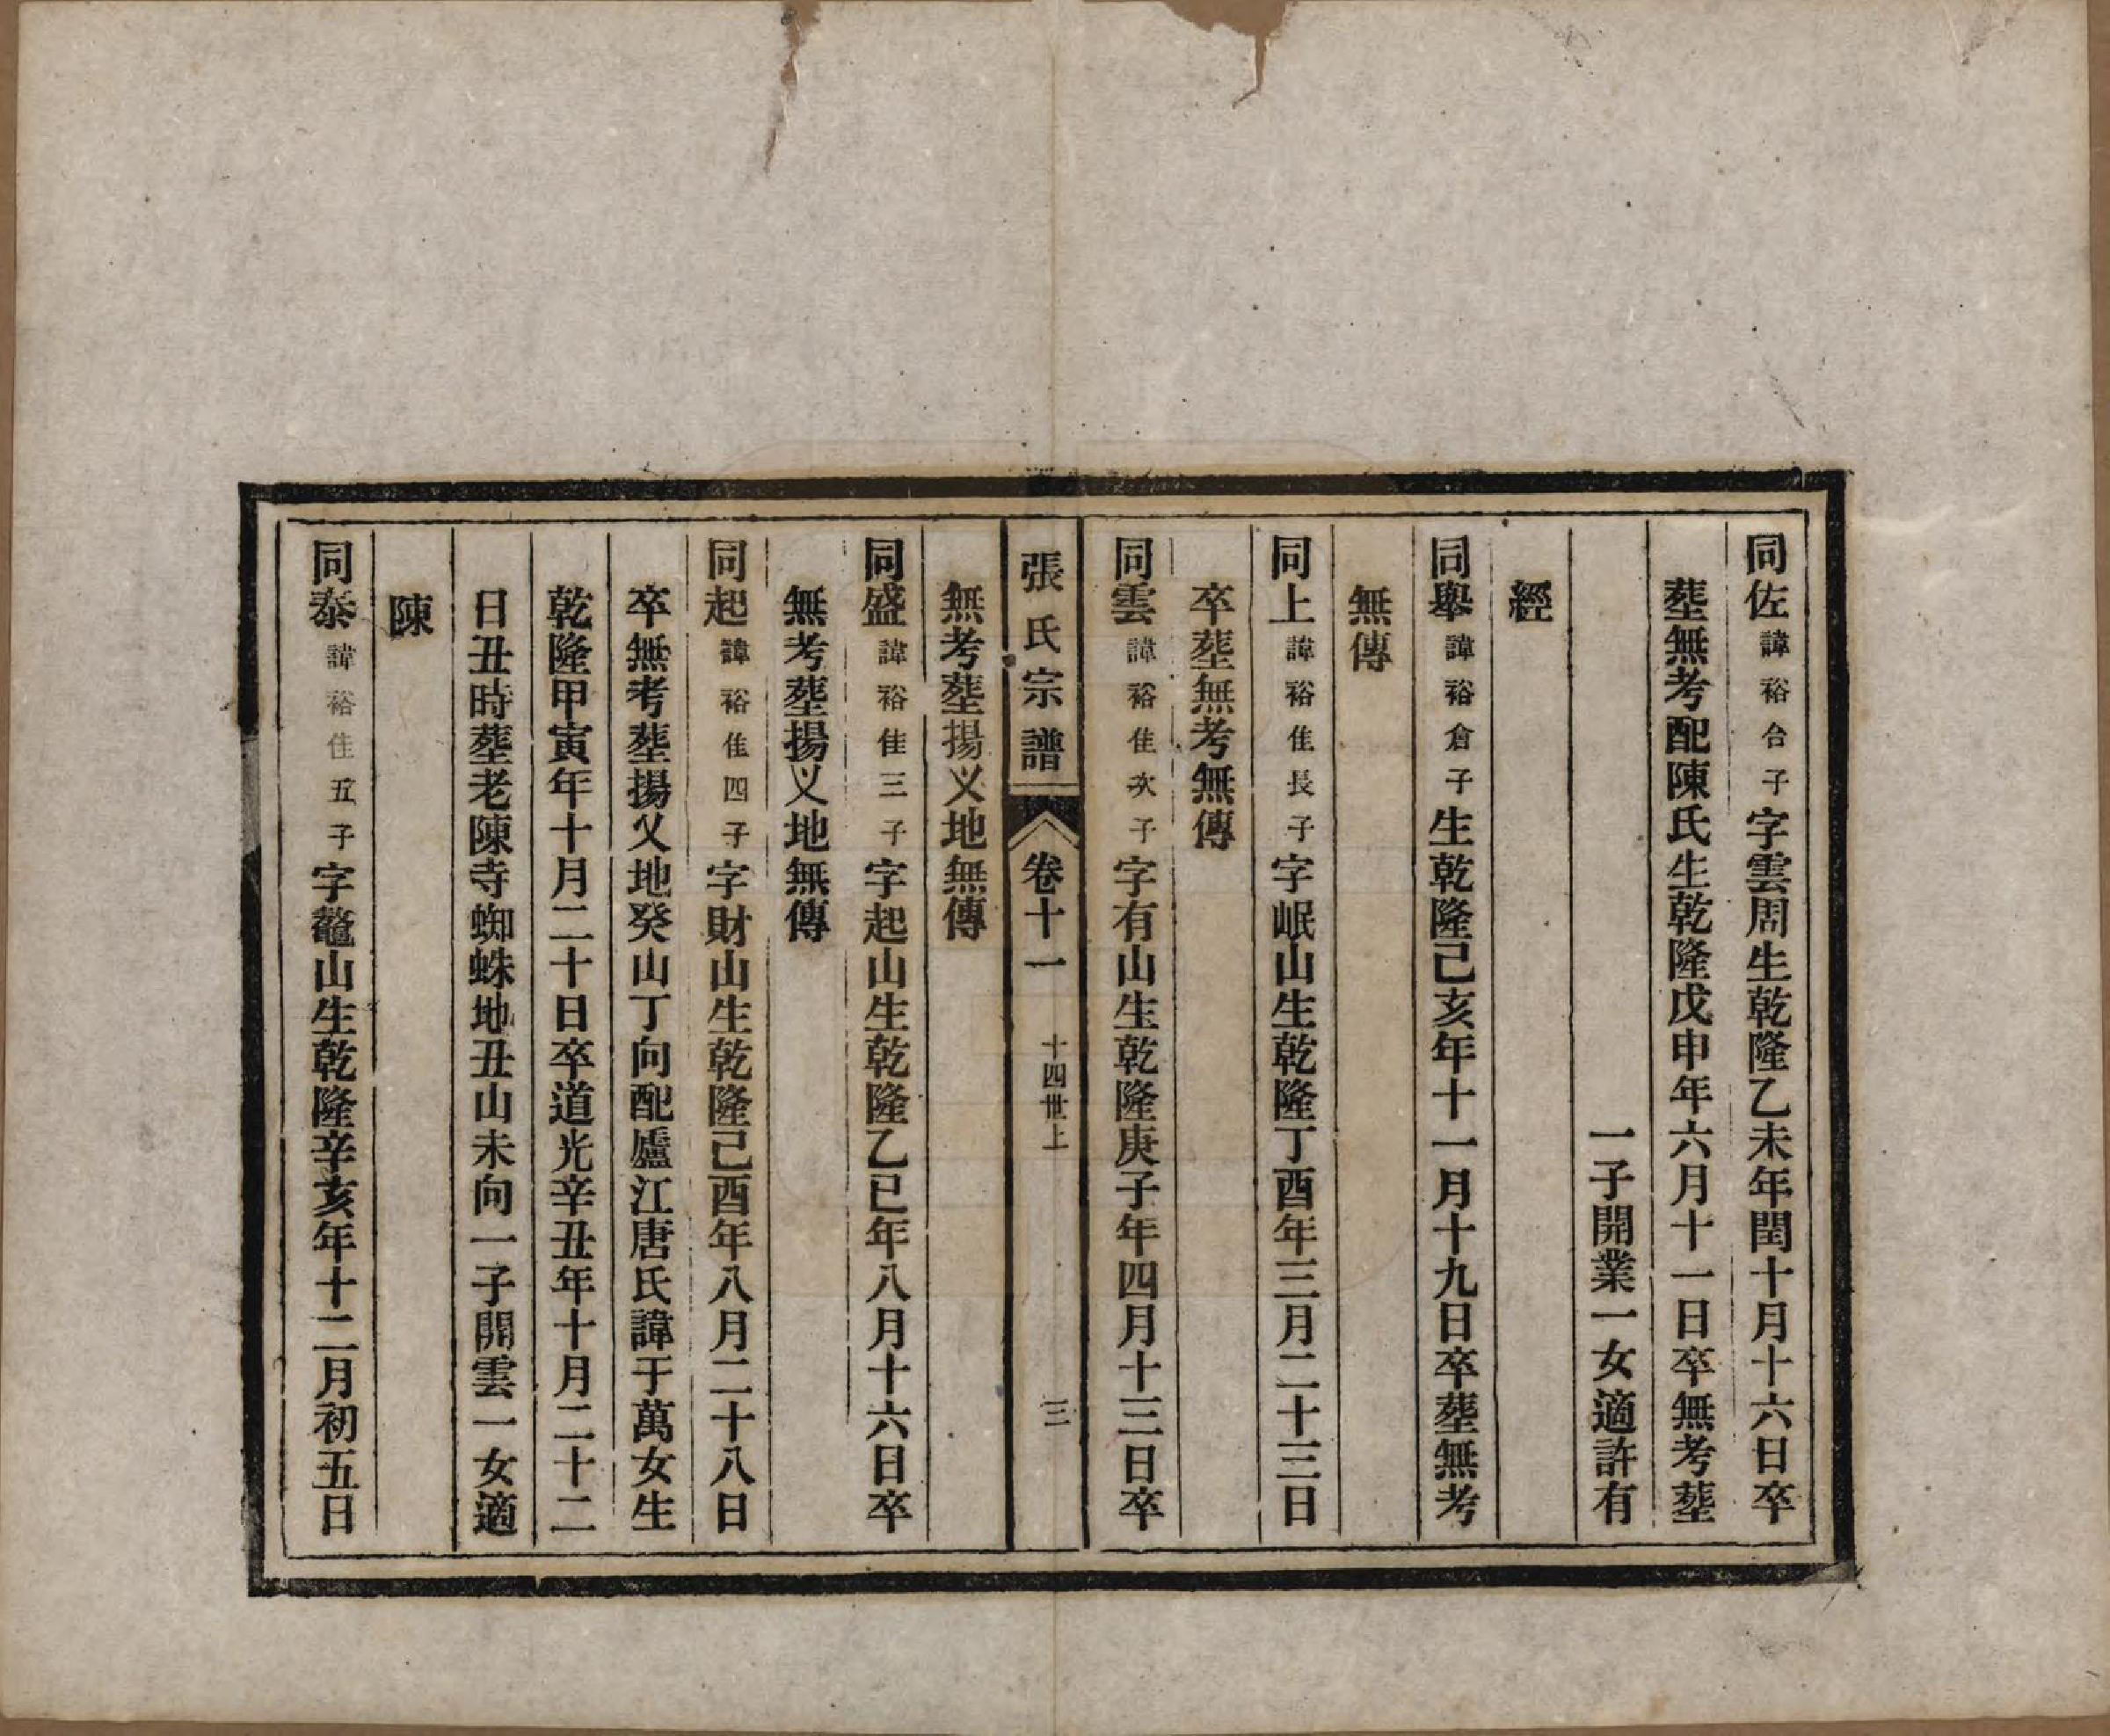 同佐諱裕合子字雲周生乾隆乙未年閏十月十六日卒
塟無考配陳氏生乾隆戊申年六月十一日卒無考塟
一子開業一女適許有
經
同舉諱裕倉子生乾隆己亥年十一月十九日卒塟無考
無傳
同上諱裕佳長子字岷山生乾隆丁酉年三月二十三日
卒塟無考無傳
同雲諱裕佳次子字有山生乾隆庚子年四月十三日卒
張氏宗譜 卷十一 十四世上 三
無考塟揚义地無傳
同盛諱裕佳三子字起山生乾隆乙巳年八月十六日卒
無考塟揚义地無傳
同起諱裕佳四子字財山生乾隆己酉年八月二十八日
卒無考塟揚义地癸山丁向配廬江唐氏諱于萬女生
乾隆甲寅年十月二十日卒道光辛丑年十月二十二
日丑時塟老陳寺蜘蛛地丑山未向一子開雲一女適
陳
同泰諱裕佳五子字鼇山生乾隆辛亥年十二月初五日